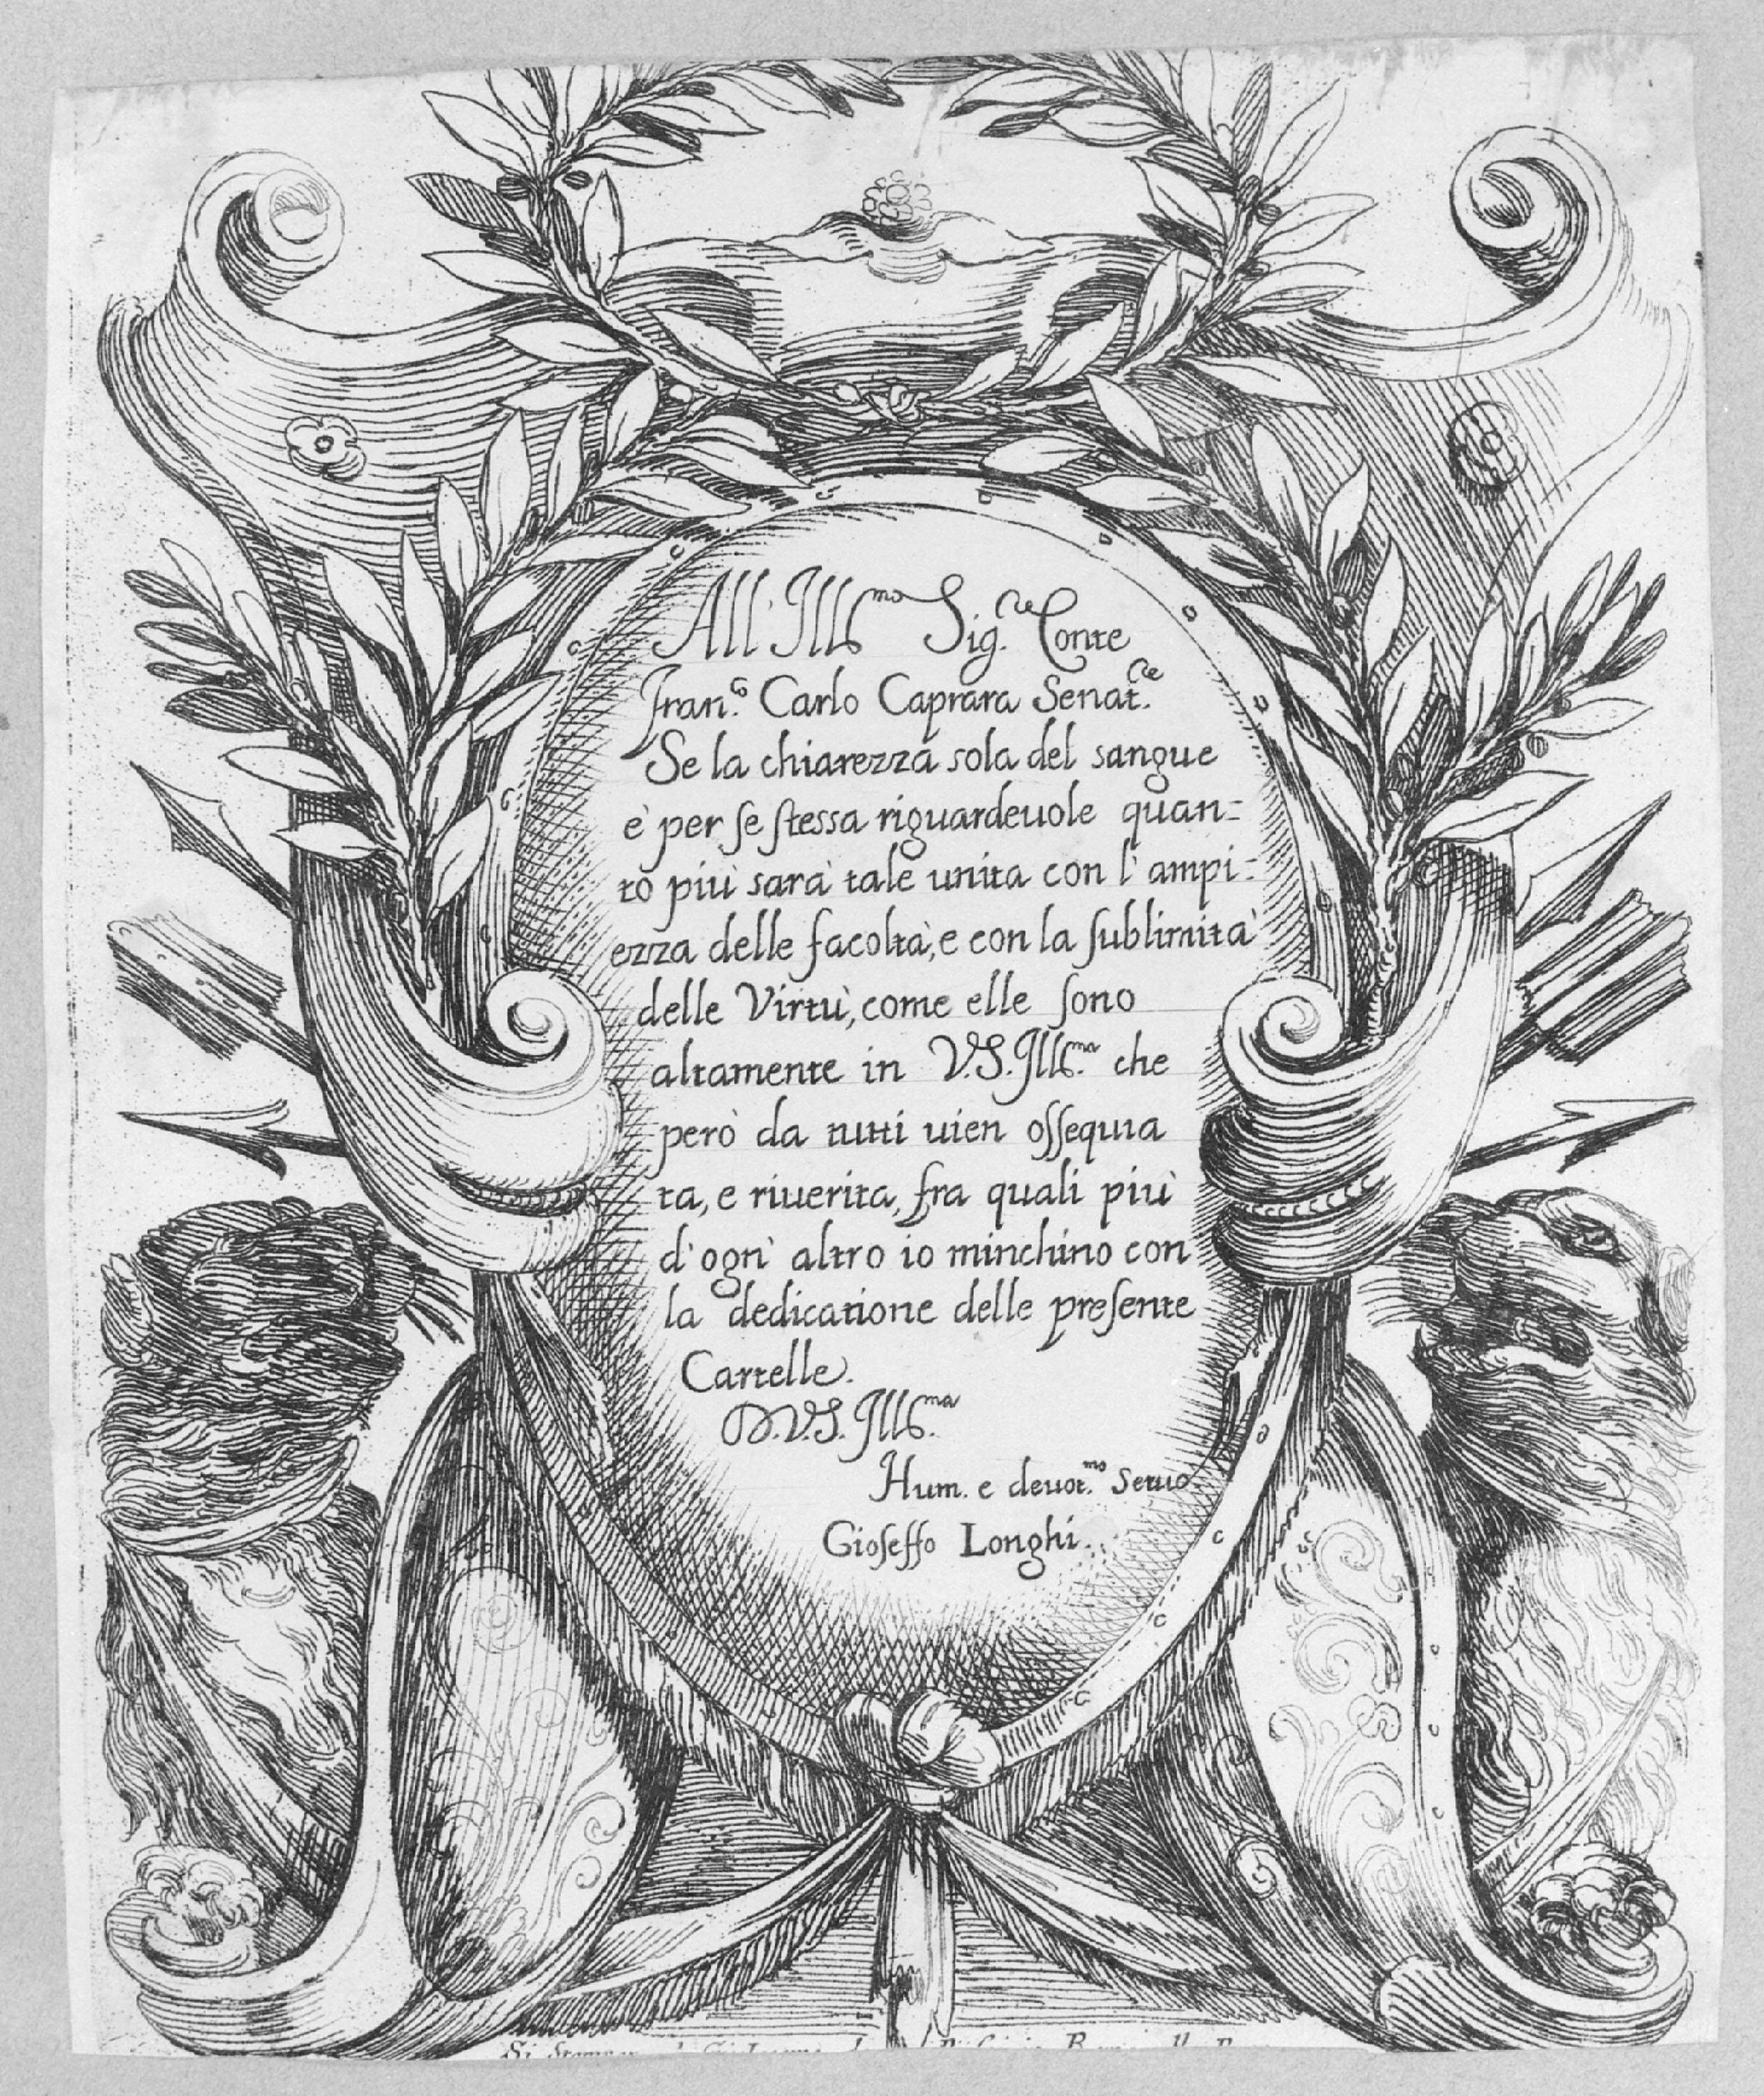 All'Ill.mo Sig.re Conte
Fran.co Carlo Caprara Senat.re
Se la chiarezza sola del sangue
è per se stessa riguardeuole quan=
to più sarà tale unita con l'ampi=
ezza delle facoltà, e con la sublimità
delle Virtù, come elle sono
altamente in V.S. Ill.ma che
però da tutti uien ossequia
ta, e riuerita, fra quali più
d'ogn' altro io minchino con
la dedicatione delle presente
Cartelle.
D.V.S. Ill.ma
Hum. e deuot.mo Seruo
Gioseffo Longhi.